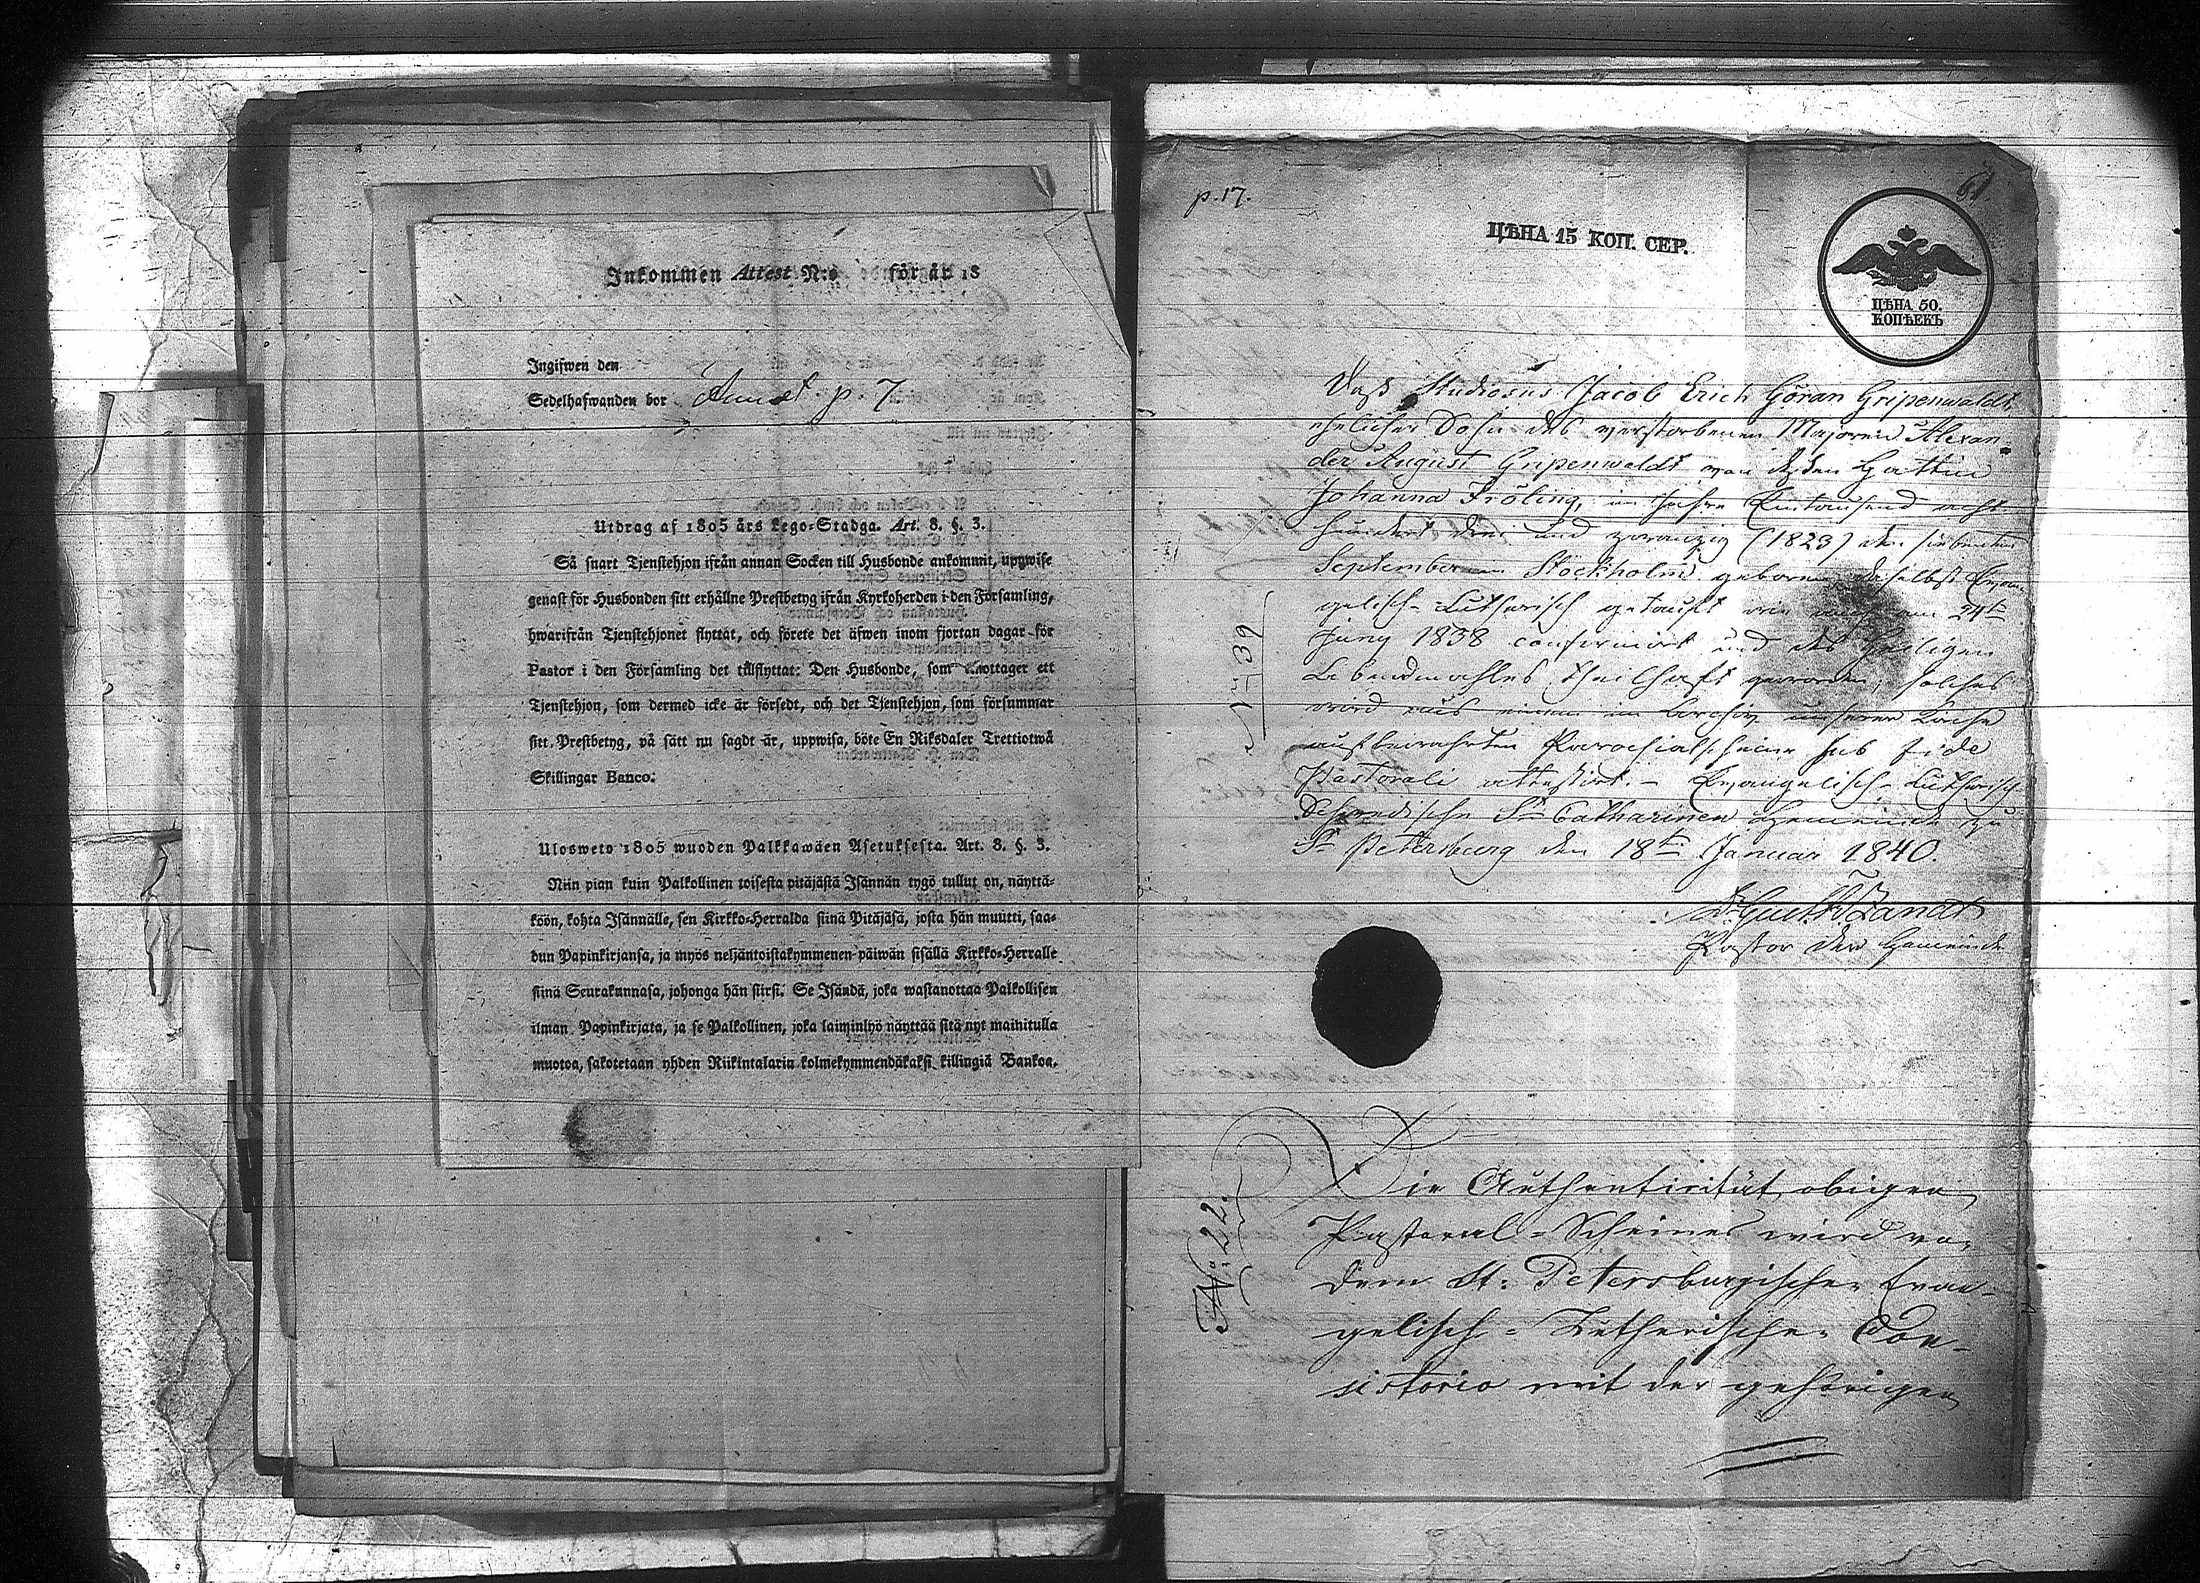 Inkommen Attest N:o för år 18
Ingifwen den
Sedelhafwanden bor p. 7.
Utdrag af 1805 års Lego-Stadga. Art. 8. §. 3.
Så snart Tjenstehjon ifrån annan Socken till Husbonde ankommit, uppwise
genast för Husbonden sitt erhållne Prestbetyg ifrån Kyrkoherden i den Församling,
hwarifrån Tjenstehjonet flyttat, och förete det äfwen inom fjorton dagar för
Pastor i den Församling det tillflyttat. Den Husbonde, som emottager ett
Tjenstehjon, som dermed icke är försedt, och det Tjenstehjon, som försummar
sitt Prestbetyg, på sätt nu sagdt är, uppwisa, böte En Riksdaler Trettiotwå
Skillingar Banco.
Ulosweto 1805 wuoden Palkkawäen Asetuksesta. Art. 8. §. 3.
Niin pian kuin Palkollinen toisesta pitäjästä Isännän tygö tullut on, näyttä-
köön, kohta Isännälle, sen Kirkko-Herralda siinä Pitäjäsä, josta hän muutti, saa-
dun Papinkirjansa, ja myös neljäntoistakymmenen päiwän sisällä Kirkko-Herralle
siinä Seurakunnasa, johonga hän siirsi. Se Isändä, joka wastanottaa Palkollisen
ilman Papinkirjata, ja se Palkollinen, joka laiminlyö näyttää sitä nyt mainitulla
muotoa, sakotetaan yhden Riikintalarin kolmekymmendäkaksi killingiä Bankoa.
p. 17.
61
ЦѢНА 15 КОП. СЕР.
ЦѢНА 50.
КОПѢЕКЪ
Daß Studiosus Jacob Erich Göran Gripenwaldt,
ehelicher Sohn des verstorbenen Majoren Alexan-
der August Gripenwaldt von dessen Gattin
Johanna Fröling, im Jahre Eintausend acht
hundert drei und zwanzig (1823) den siebenten
September in Stockholm geboren, daselbst Evan-
gelisch-Lutherisch getauft wie auch am 24ten
Juny 1838 confirmirt und des heiligen
Abendmahles theilhaft geworden, solches
wird aus einem im Archiv unserer Kirche
aufbewahrten Parochialscheine sub fide
Pastorali attestirt. - Evangelisch-Lutherisch
Schwedische St Catharinen Gemeinde zu
St Petersburg den 18ten Januar 1840.
Pastor der Gemeinde
No 39
No: 22.
Die Authenticität obigen
Pastoral-Scheines wird von
dem St: Petersburgischen Evan-
gelisch-Lutherischen Con-
sistorio mit der gehörigen